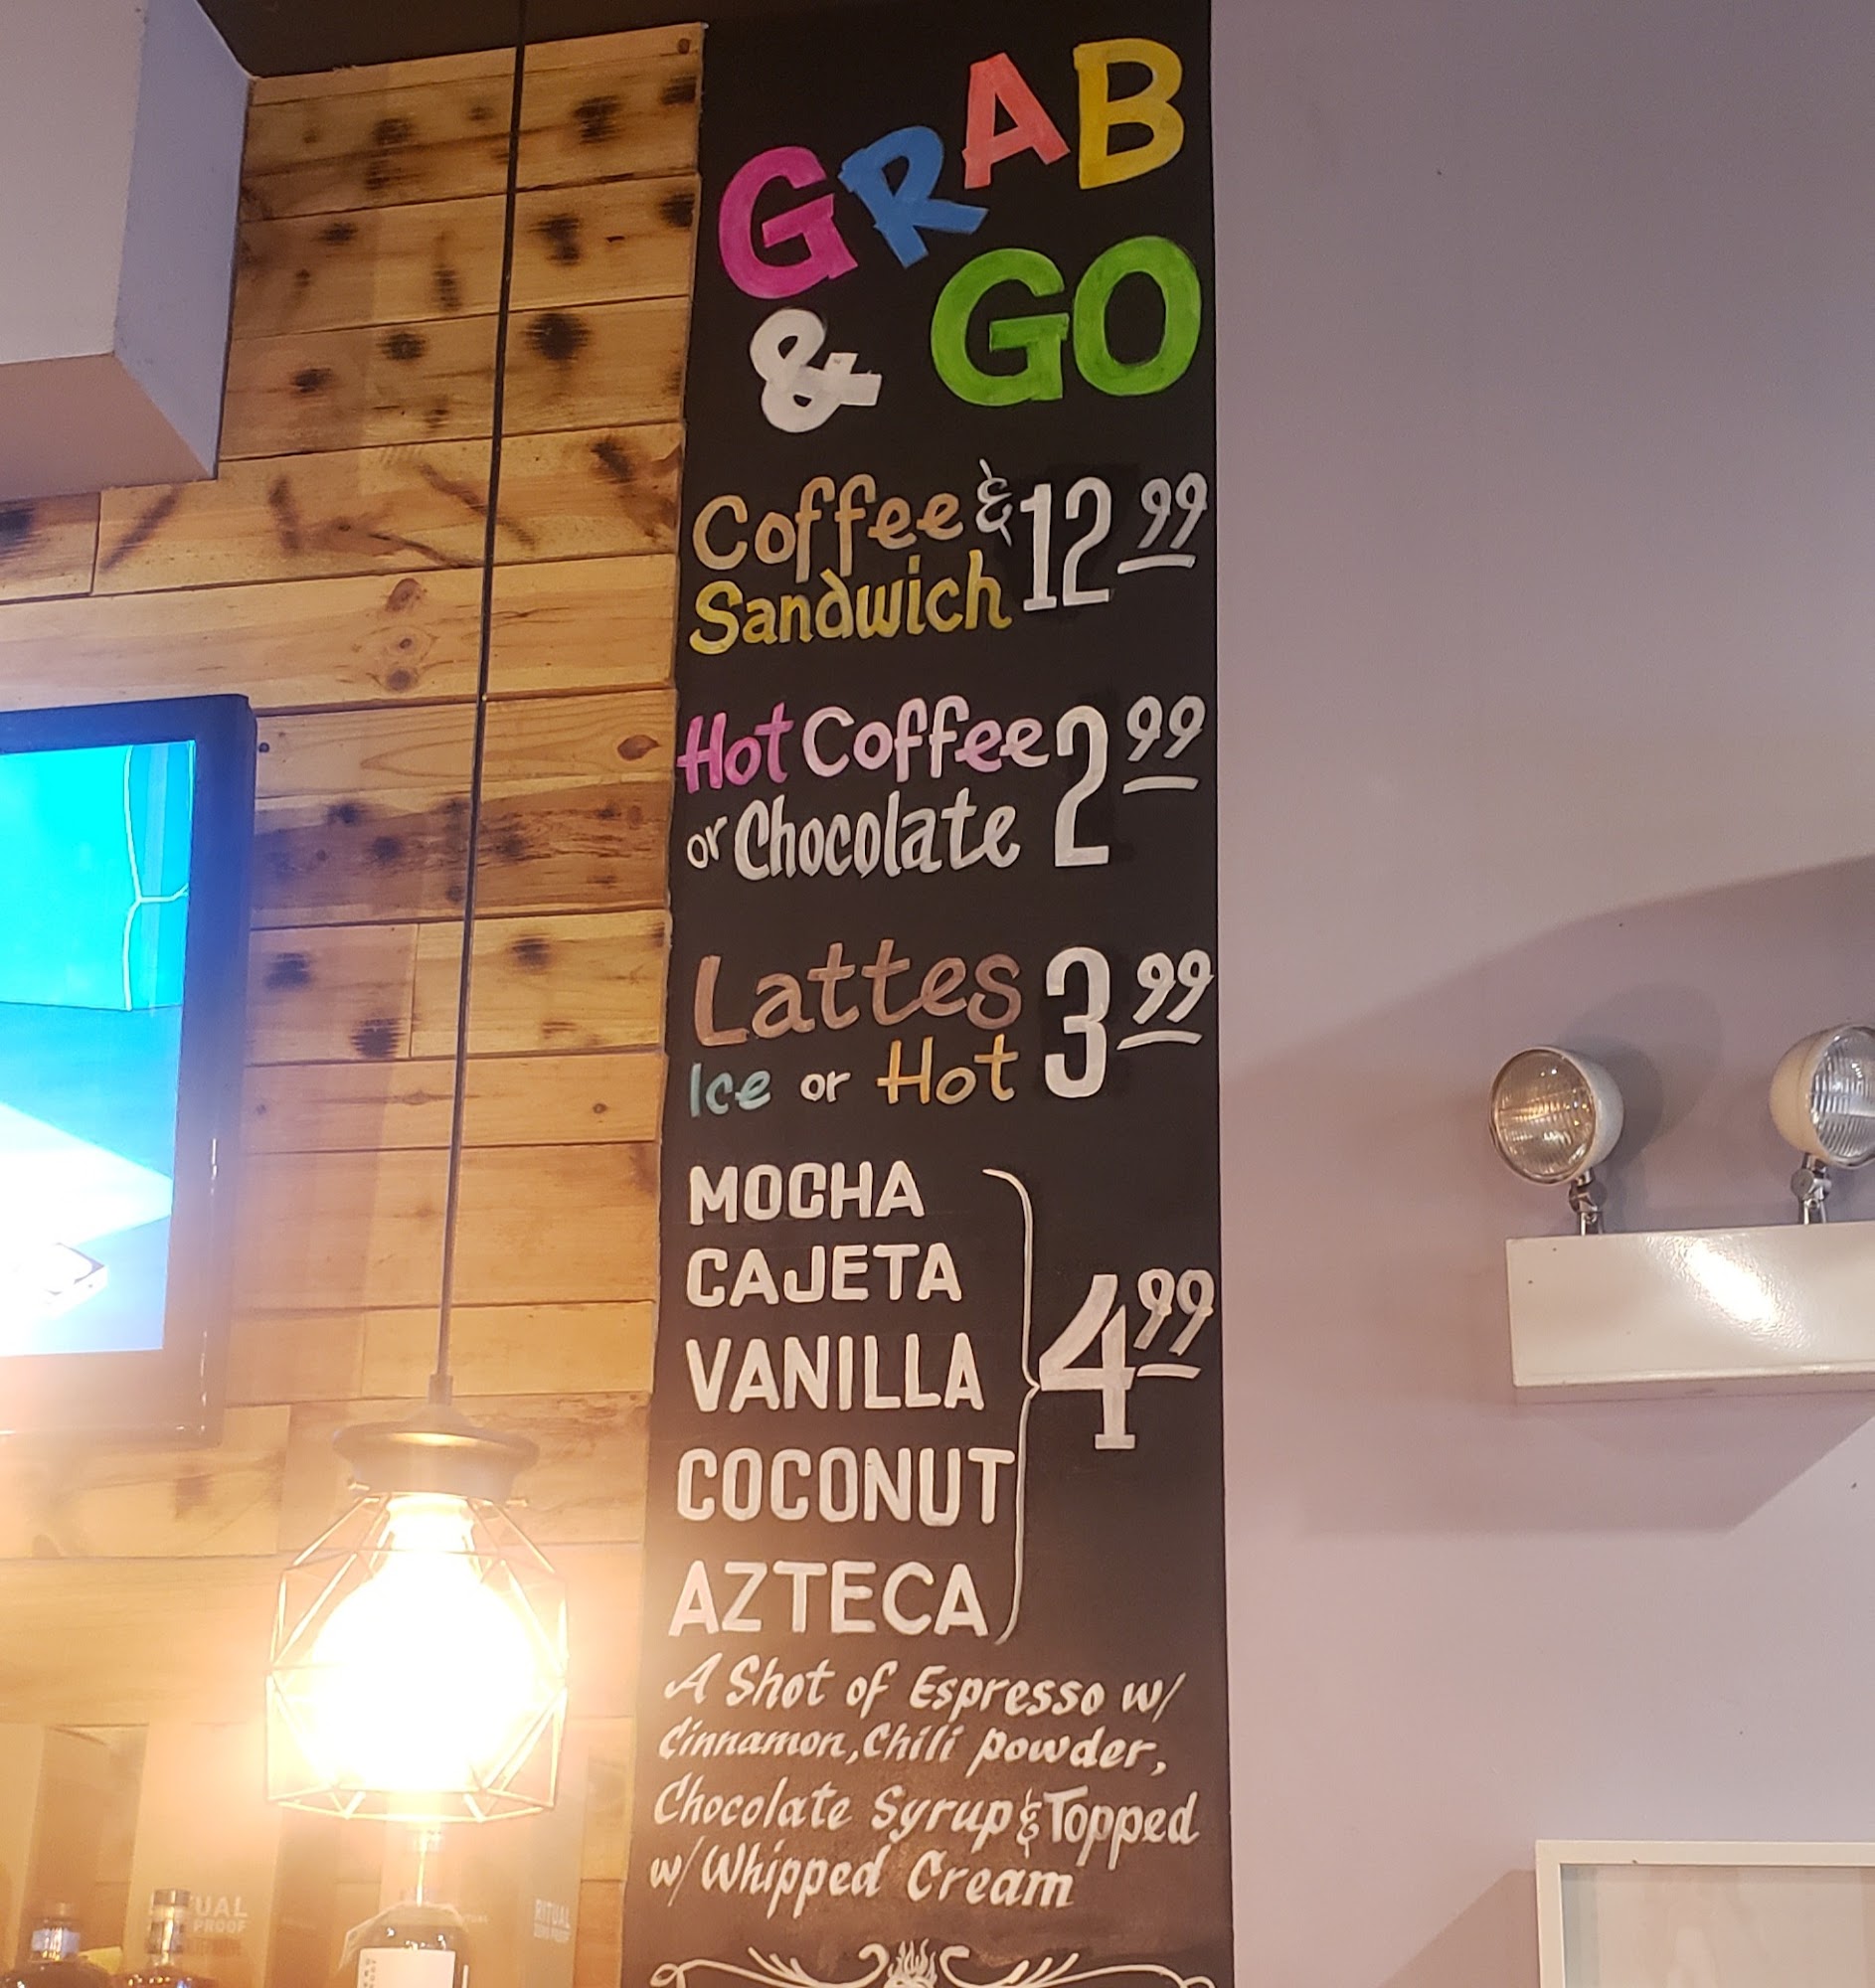 GRAB
& GO
Coffee & 12 99
Sandwich
Hot Coffee 2 99
or Chocolate
Lattes 3 99
Ice or Hot
MOCHA
CAJETA
VANILLA 4 99
COCONUT
AZTECA
A Shot of Espresso w/
Cinnamon, Chili powder,
Chocolate Syrup & Topped
w/ Whipped Cream
UAL
PROOF
RITUAL